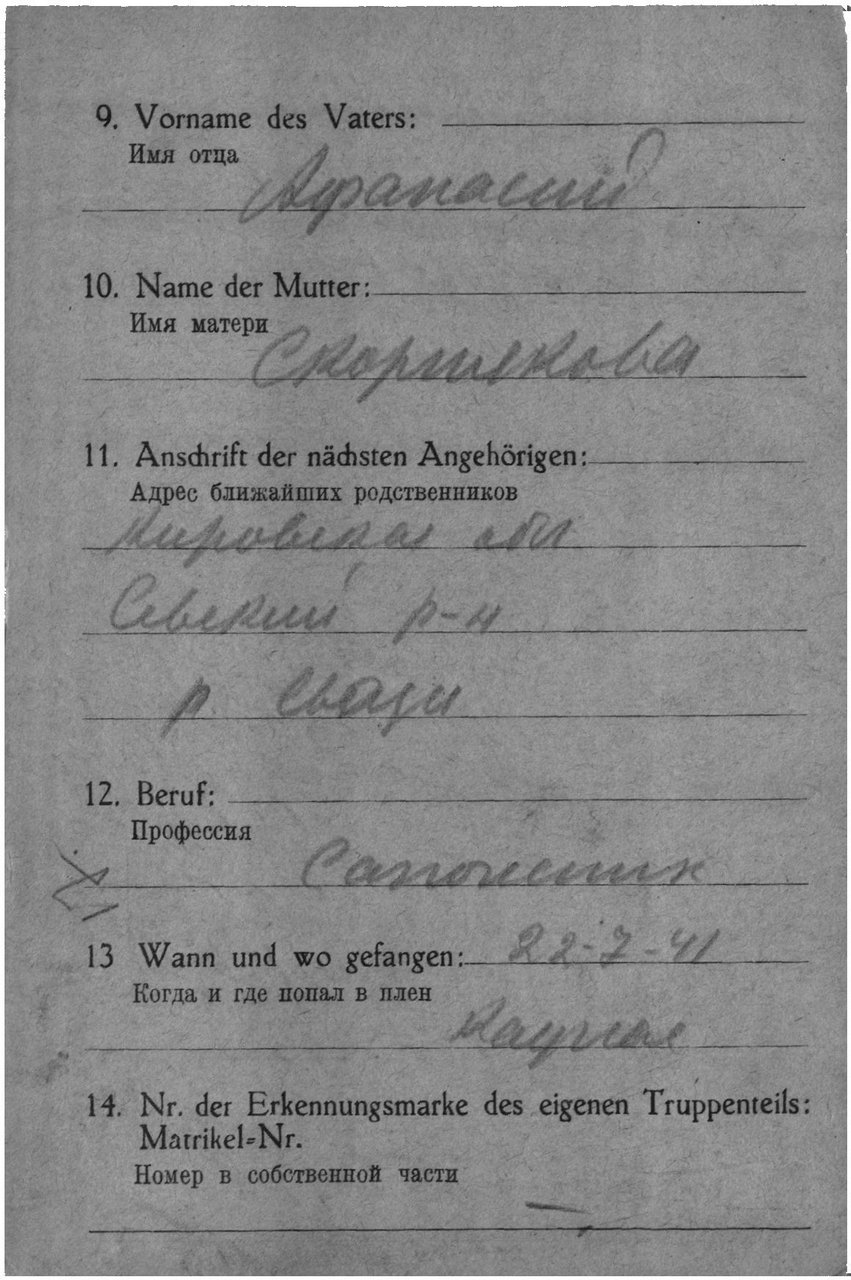 9. Vorname des Vaters:
Имя отца
Афанасий
10. Name der Mutter:
Имя матери
11. Anschrift der nächsten Angehörigen:
Адрес ближайших родственников
Кировская обл
р-н
р
12. Beruf:
Профессия
Сапожник
13 Wann und wo gefangen: 22-7-41
Когда и где попал в плен
14. Nr. der Erkennungsmarke des eigenen Truppenteils:
Matrikel-Nr.
Номер в собственной части